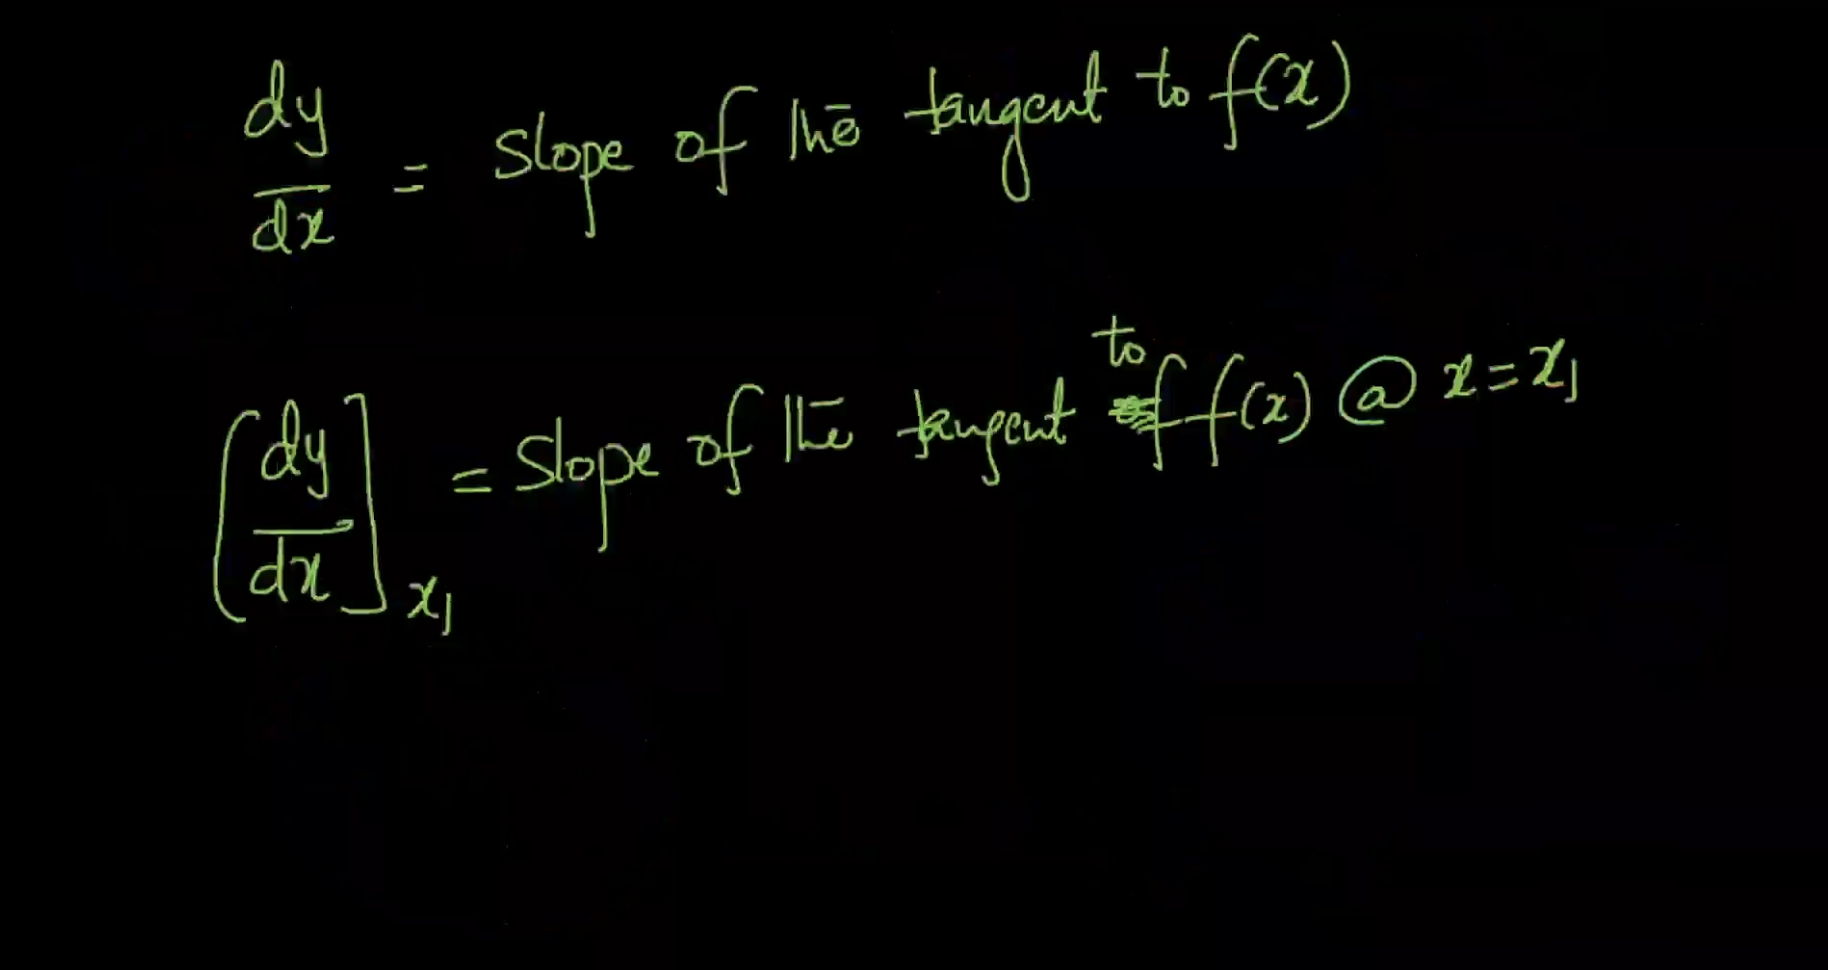 dy/dx = slope of the tangent to f(x)
[dy/dx]x₁ = slope of the tangent to f(x) @ x = x₁